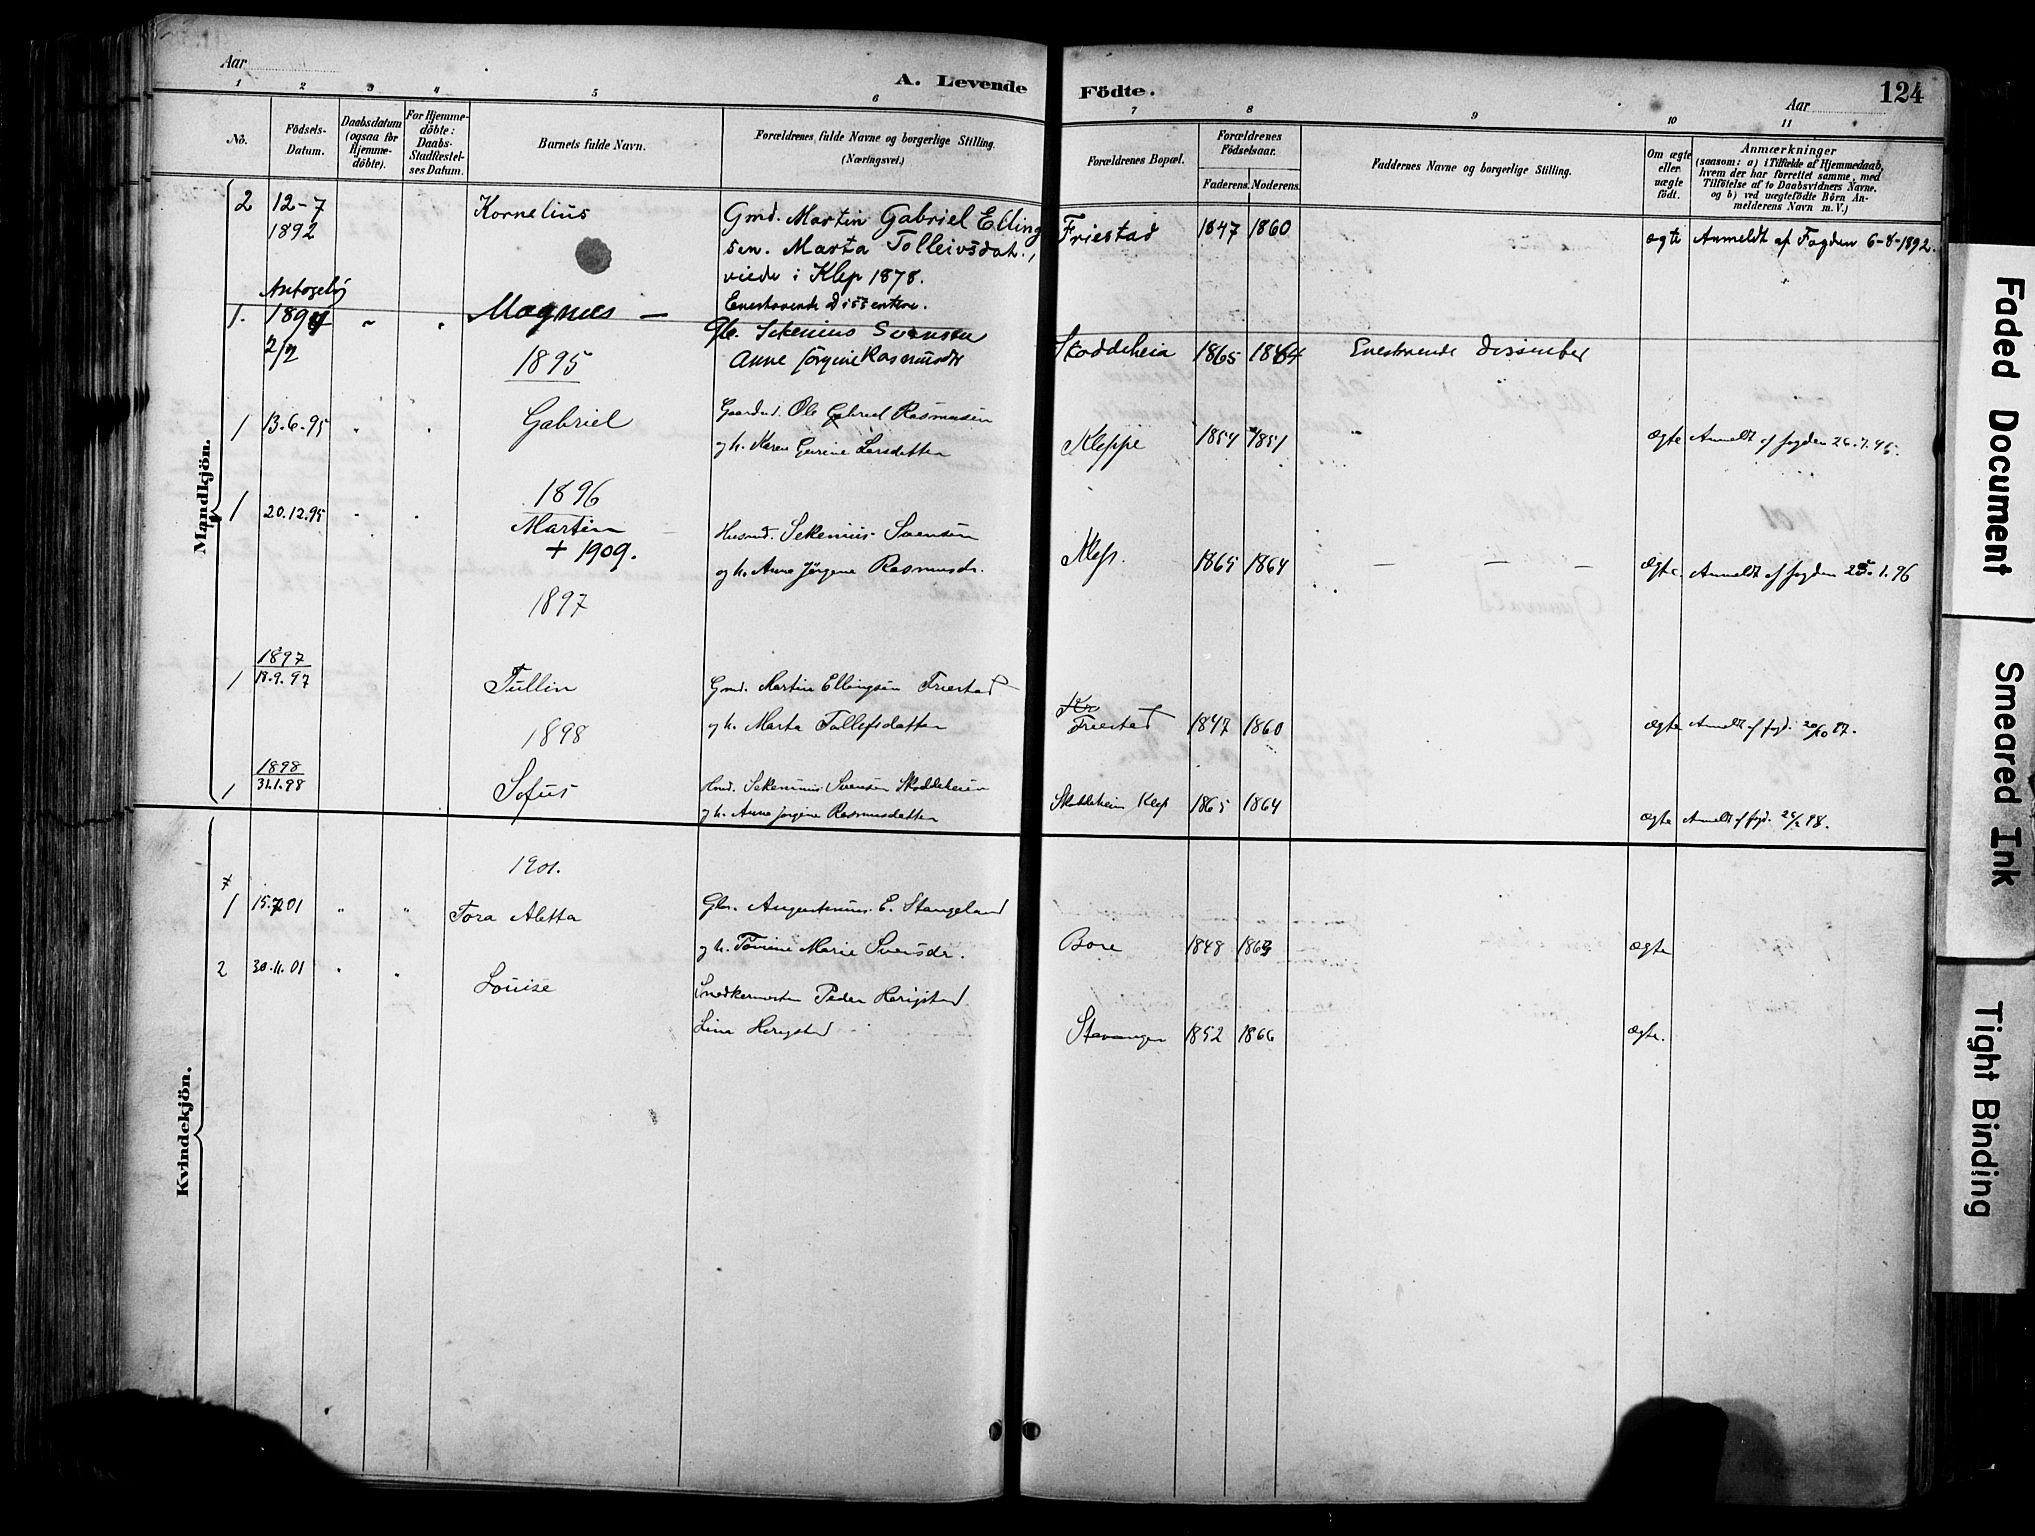 Aar
A. Levende Födte.
Aar
124
1 2 3 4 5 6 7 8 9 10 11
No.
Födsels-Datum.
Daabsdatum (ogsaa for Hjemmedöbte).
For Hjemmedöbte: Daabs-Stadfæstelses Datum.
Barnets fulde Navn.
Forældrenes fulde Navne og borgerlige Stilling. (Næringsvei.)
Forældrenes Bopæl.
Forældrenes Födselsaar.
Faderens. Moderens.
Faddernes Navne og borgerlige Stilling.
Om ægte eller uægte födt.
Anmærkninger
(saasom: a) i Tilfælde af Hjemmedaab, hvem der har forrettet samme, med Tilföielse af to Daabsvidners Navne, og b) ved uægtefödte Börn Anmelderens Navn m. V.)
Mandkjön.
2 12-7 Kornelius Gmd. Martin Gabriel Elling Friestad 1847 1860 ægte Anmeldt af Fogden 6-8-1892.
1892 sen. Marta Tolleivsdat.,
viede i Klep 1878.
Enestaaende Dissentere.
1. 189 " " Magnus — Gbr. Sekenius Svensen
2/2 1895 Anne Jørgine Rasmusdt Skoddeheia 1865 1864 Enestaaende
1 13.6.95 " " Gabriel Gaardm. Ole Gabriel Rasmussen
og h. Karen Gurine Larsdatter Kleppe 1854 1851 " Ægte Anmeldt af fogden
1896
1 20.12.95 " " Martin — Husmd. Sekenius Svensen
+ 1909. og h. Anne Jørgene Rasmusdr. Klep. 1865 1864 — — — Ægte. Anmeldt af fogden 25.1.96
1897
1897
1 18.9.97 Tullin Gmd. Martin Ellingsen Friestad
1898 og h. Marta Tollefsdatter Friestad 1847 1860 Ægte Anmeldt af fogd. 20/10 97.
1898
1 31.1.98 Sofus Hmd. Sekenius Svensen Skoddeheien Skoddeheim Klep 1865 1864
og h. Anne Jørgine Rasmusdatter Ægte Anmeldt af fogd. 98.
Kvindekjön.
1901.
1 15.7.01 " " Tora Aletta Gbr. Augustinus E. Stangeland
og h. Tomine Marie Svensdr. Bore 1848 1863 ægte
2 30.11.01 " " Louise Snedkermester Peder Herigstad
Lina Herigstad Stavanger 1852 1866 ægte.
Faded Document
Smeared Ink
Tight Binding